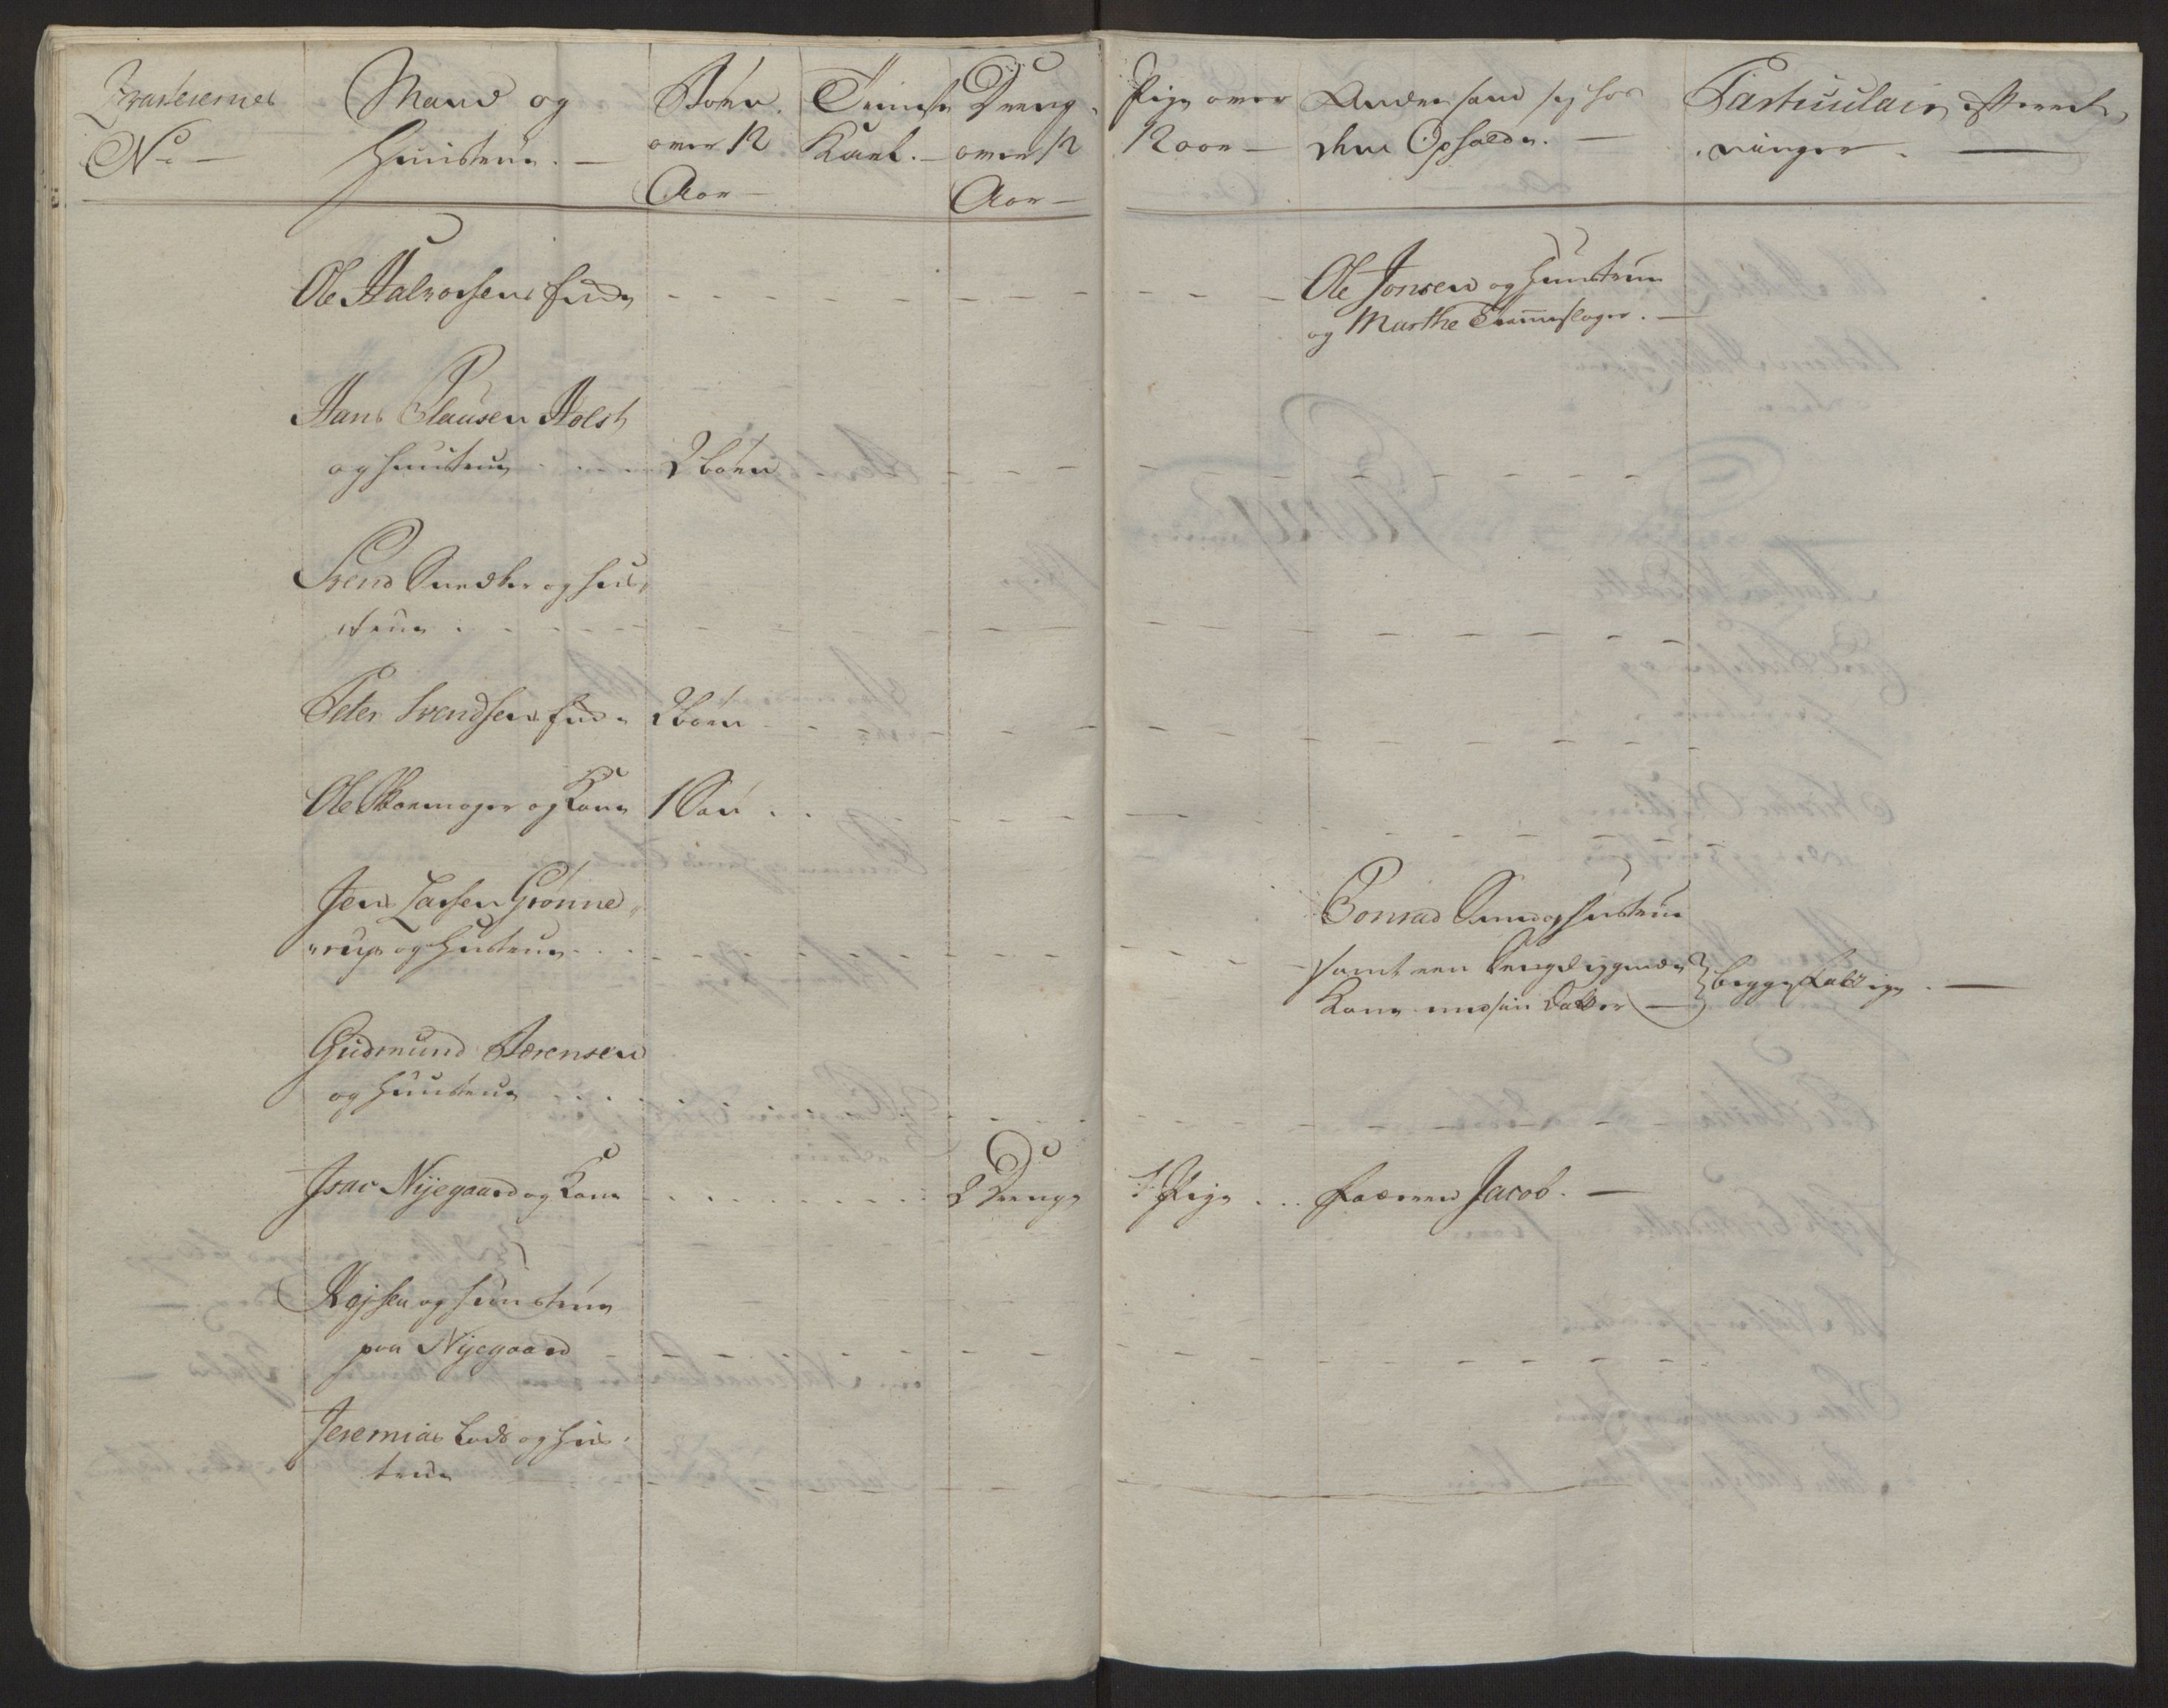 Qvarterernes
No
Mand og
Huustrue.
Børn
over 12
Aar
Tienste
Karl.
Dreng
over 12
Aar
Pige over
12 aar
Andre som sig hos
dem Opholder.
Particulaire Efterret-
ninger.
Ole Halvorsens Enke
Ole Jonsen og Huustrue
og Marthe Trommeslager.
Hans Clausen Holst
og Huustrue
2 børn
Svend Snedker og Hus-
true
Peter Svendsens Enke
2 børn
Ole Skoemager og Kone
1 Søn
Jens Larsen Grønne-
rup og Hustrue
Conrad og Hustrue
samt een
Kone med sin Datter
begge
Gudmund Sørensen
og Huustrue
Isac Nijegaard og Kone
2 Drenge
1 Pige
Jacob.
og Huustrue
paa Nijegaard
Jeremias Lods og Hus-
true